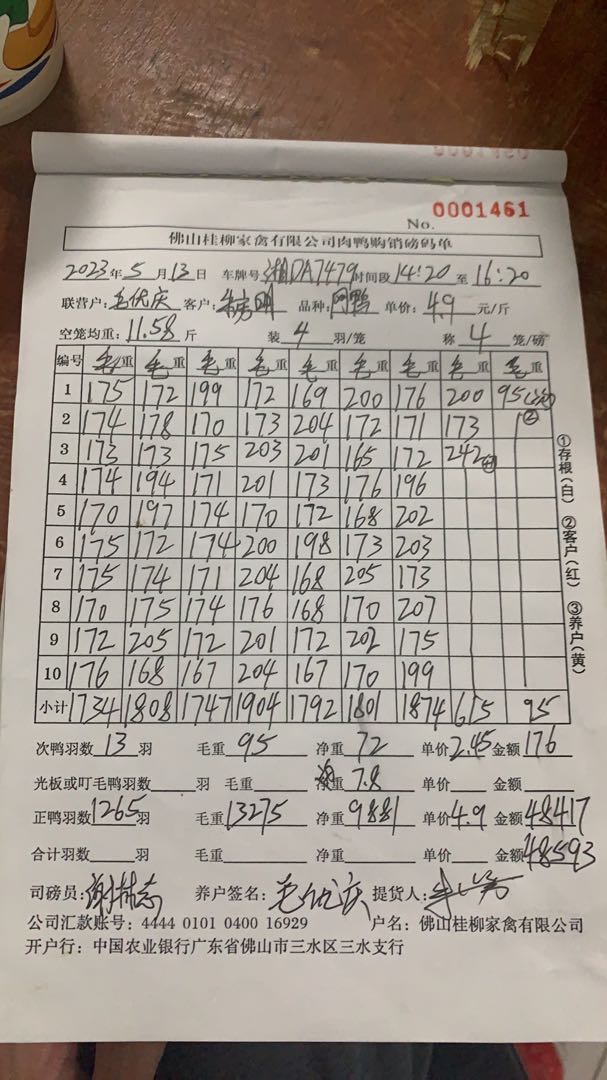 No. 0001461
佛山桂柳家禽有限公司肉鸭购销磅码单
2023年5月13日 车牌号湘DA7479时间段14:20至16:20
联营户:毛优庆 客户: 品种: 鸭 单价:4.9元/斤
空笼均重:11.58斤 装4羽/笼 称4笼/磅
编号 毛重 毛重 毛重 毛重 毛重 毛重 毛重 毛重 毛重
1 175 172 199 172 169 200 176 200 95
2 174 178 170 173 204 172 171 173 ②
3 173 173 175 203 201 165 172 242
4 174 194 171 201 173 176 196
5 170 197 174 170 172 168 202
6 175 172 174 200 198 173 203
7 175 174 171 204 168 205 173
8 170 175 174 176 168 170 207
9 172 205 172 201 172 202 175
10 176 168 167 204 167 170 199
小计 1734 1808 1747 1904 1792 1801 1874 615 95
①存根(白) ②客户(红) ③养户(黄)
次鸭羽数13羽 毛重95 净重72 单价2.45 金额176
光板或叮毛鸭羽数 羽 毛重 净重7.8 单价 金额
正鸭羽数1265羽 毛重13275 净重9881 单价4.9 金额48417
合计羽数 羽 毛重 净重 单价 金额48593
司磅员:谢林志 养户签名:毛优庆 提货人:
公司汇款账号:4444 0101 0400 16929 户名:佛山桂柳家禽有限公司
开户行:中国农业银行广东省佛山市三水区三水支行